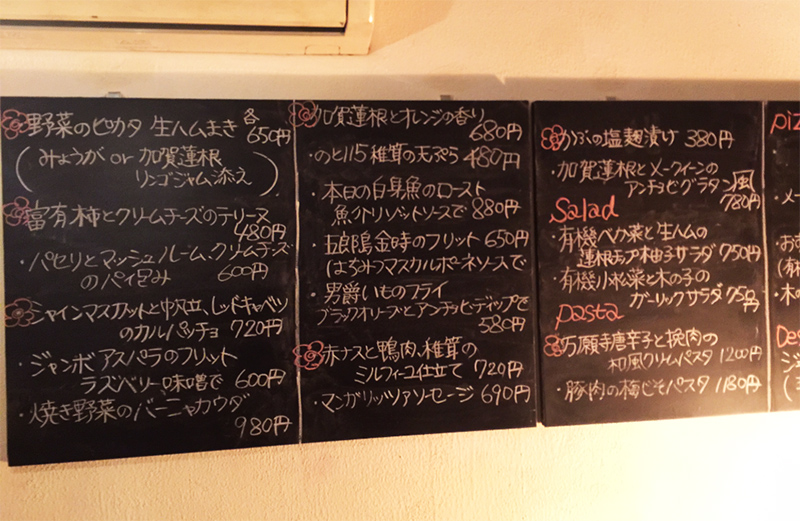 野菜のピカタ 生ハムまき 各650円
(みょうが or 加賀蓮根
リンゴジャム添え)
富有柿とクリームチーズのテリーヌ
480円
・パセリとマッシュルーム、クリームチーズ
のパイ包み 600円
シャインマスカットと帆立、レッドキャベツ
のカルパッチョ 720円
・ジャンボアスパラのフリット
ラズベリー味噌で 600円
・焼き野菜のバーニャカウダ
980円
加賀蓮根とオレンジの香り
680円
・のと115椎茸の天ぷら 480円
・本日の白身魚のロースト
魚介リゾットソースで 880円
・五郎島金時のフリット 650円
(はちみつマスカルポーネソースで
・男爵いものフライ
ブラックオリーブとアンチョビディップで
580円
赤ナスと鴨肉、椎茸の
ミルフィーユ仕立て 720円
・マンガリッツァソーセージ 690円
かぶの塩麹漬け 380円
・加賀蓮根とメークインの
アンチョビグラタン風
780円
Salad
・有機ベカ菜と生ハムの
蓮根チップ柚子サラダ 750円
・有機小松菜と木の子の
ガーリックサラダ 750円
pasta
万願寺唐辛子と挽肉の
和風クリームパスタ 1200円
・豚肉の梅じそパスタ 1180円
piz
・メー
・お
(有
・木の
Des
ジ
(